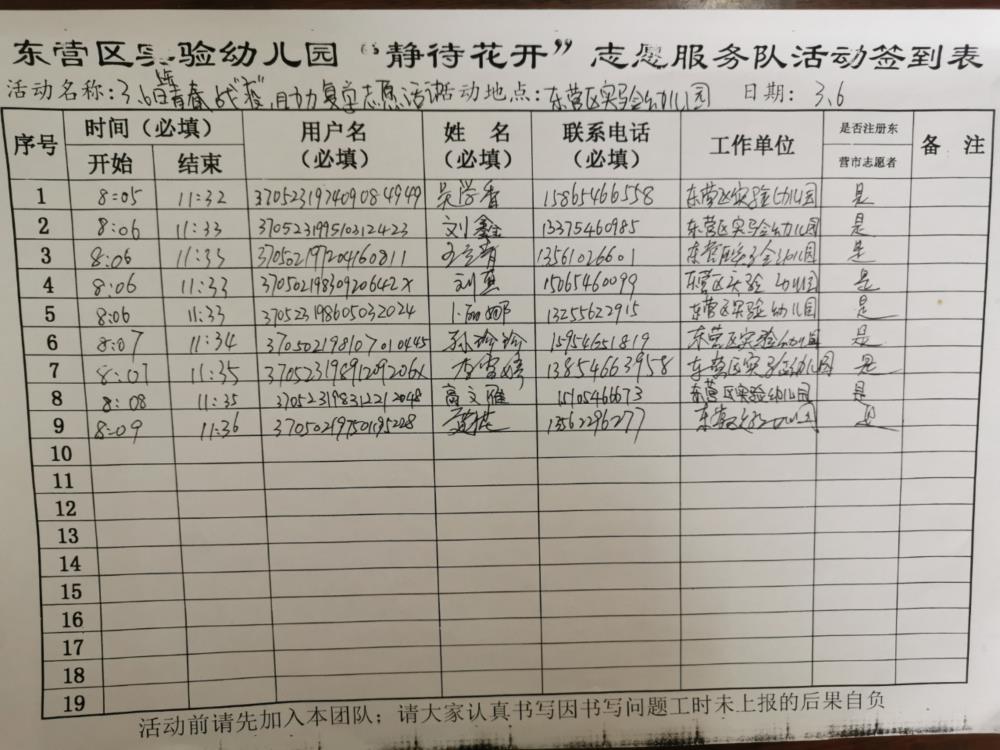 东营区实验幼儿园“静待花开”志愿服务队活动签到表
活动名称：3.6日青春战疫，助力复学志愿活动 活动地点：东营区实验幼儿园 日期：3.6
序号 时间（必填） 用户名（必填） 姓名（必填） 联系电话（必填） 工作单位 是否注册东营市志愿者 备注
开始 结束
1 8:05 11:32 370523197409084949 吴学香 15865466558 东营区实验幼儿园 是
2 8:06 11:33 370523199510312423 刘鑫 13375460985 东营区实验幼儿园 是
3 8:06 11:33 370502197204160811 13561026601 东营区实验幼儿园 是
4 8:06 11:33 37050219830920642x 刘燕 15065460099 东营区实验幼儿园 是
5 8:06 11:33 370523198605032024 卜丽娜 13255622915 东营区实验幼儿园 是
6 8:07 11:34 370502198107010445 孙珍珍 15954651819 东营区实验幼儿园 是
7 8:07 11:35 37052319891209206x 李雪婷 13854663958 东营区实验幼儿园 是
8 8:08 11:35 370523198312212048 高文雁 15105466673 东营区实验幼儿园 是
9 8:09 11:36 13562296277 东营区实验幼儿园 是
10
11
12
13
14
15
16
17
18
19
活动前请先加入本团队；请大家认真书写因书写问题工时未上报的后果自负